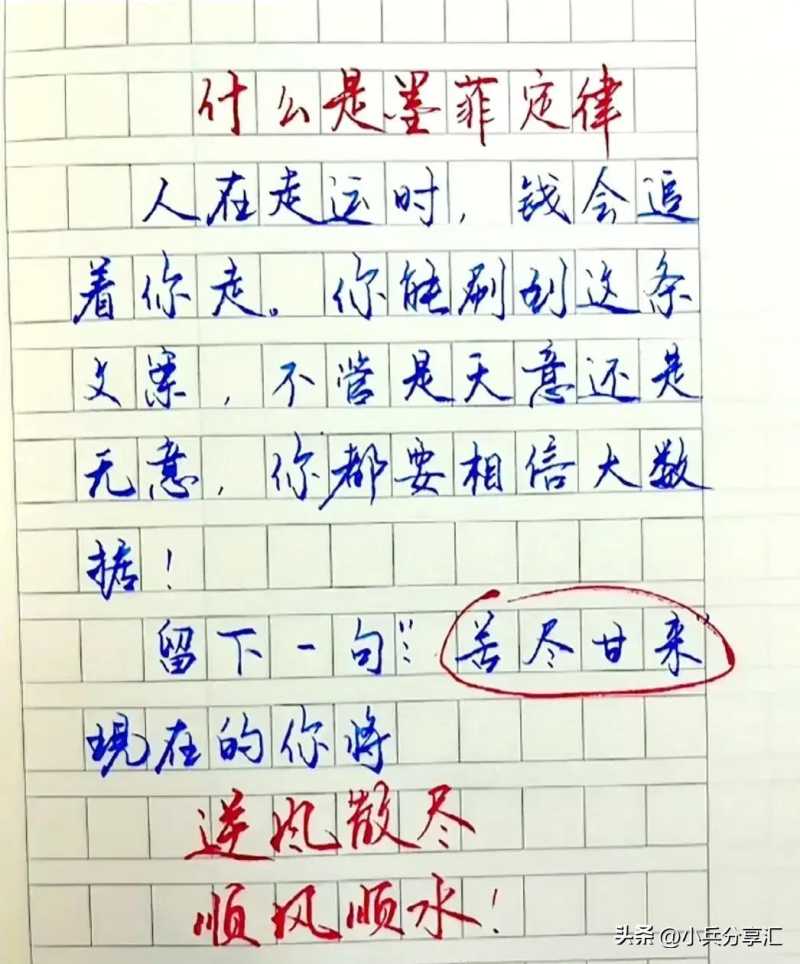 什么是墨菲定律
人在走运时，钱会追
着你走。你能刷到这条
文案，不管是天意还是
无意，你都要相信大数
据！
留下一句：“苦尽甘来”
现在的你将
逆风散尽
顺风顺水！
头条@小兵分享汇